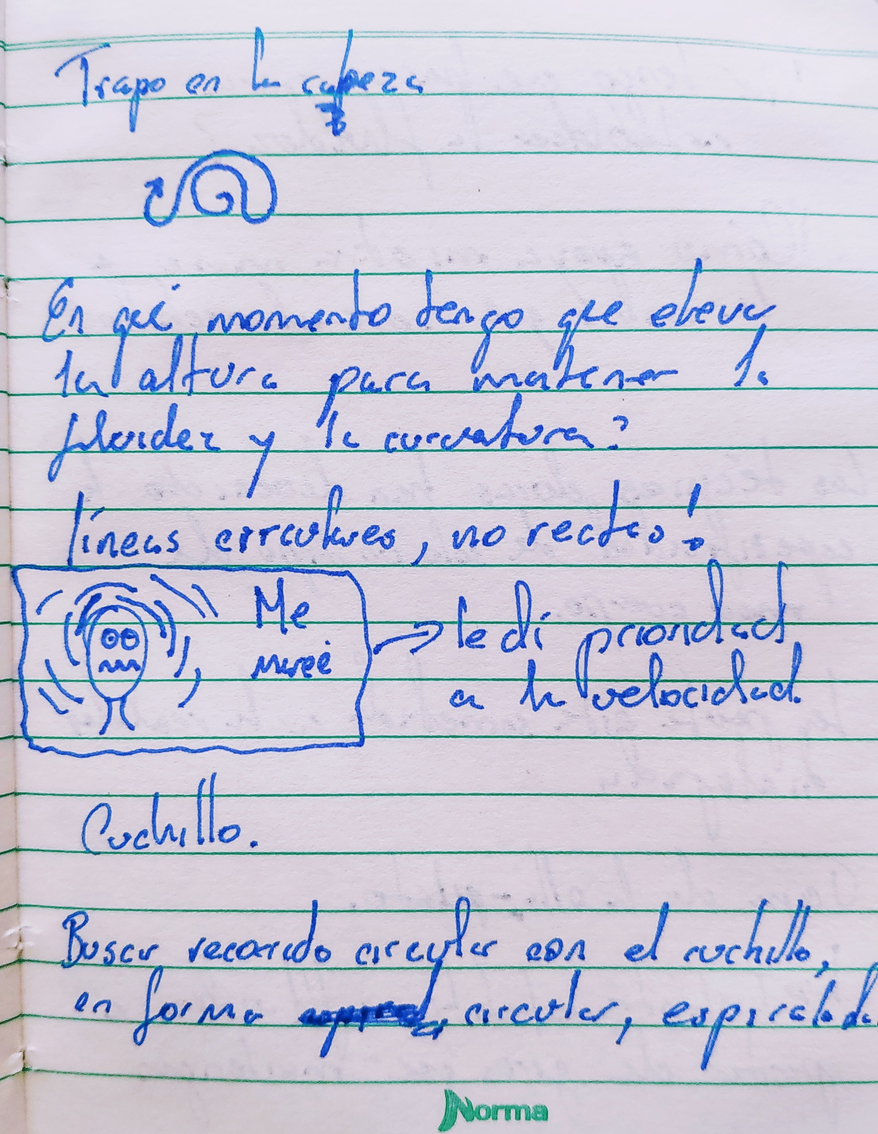 Trapo en la cabeza
En qué momento tengo que elevar
la altura para matener la
fluidez y la curvatura?
líneas circulares, no rectas!
Me
mareé
le di prioridad
a la velocidad.
Cuchillo.
Buscar recorrido circular con el cuchillo,
en forma circular, espiralada
Norma